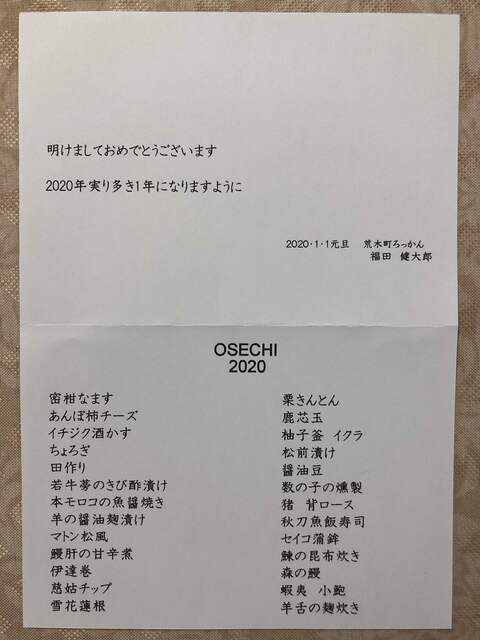 明けましておめでとうございます
2020年実り多き1年になりますように
2020・1・1元旦　荒木町ろっかん
福田　健太郎
OSECHI
2020
密柑なます
あんぽ柿チーズ
イチジク酒かす
ちょろぎ
田作り
若牛蒡のきび酢漬け
本モロコの魚醤焼き
羊の醤油麹漬け
マトン松風
鰻肝の甘辛煮
伊達巻
慈姑チップ
雪花蓮根
栗きんとん
鹿芯玉
柚子釜　イクラ
松前漬け
醤油豆
数の子の燻製
猪　背ロース
秋刀魚飯寿司
セイコ蒲鉾
鰊の昆布炊き
森の鰻
蝦夷　小鮑
羊舌の麹炊き